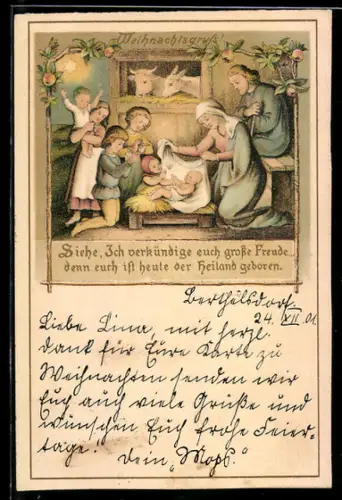 Weihnachtsgruß!
Siehe, Ich verkündige euch große Freude...
denn euch ist heute der Heiland geboren.
Berthelsdorf
24. XII. 01.
Liebe Lina, mit herzl.
dank für Eure Karte zu
Weihnachten senden wir
Euch auch viele Grüße und
wünschen Euch frohe Feier-
tage. Dein „Mops."